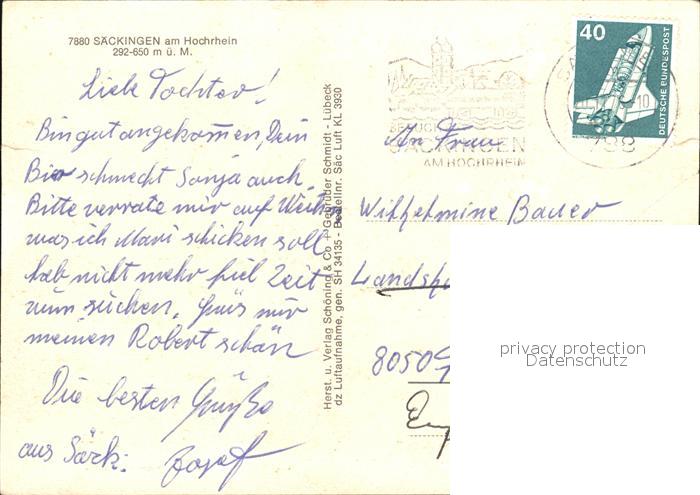 7880 SÄCKINGEN am Hochrhein
292-650 m ü. M.
Liebe Tochter!
Bin gut angekommen, Dein
Bier schmeckt Sonja auch.
Bitte verrate mir auf Weih
was ich Mari schicken soll
hab nicht mehr fiel Zeit
zum suchen, Grüs mir
meinen Robert schön
Die besten Grüße
aus Säck: Josef
Herst. u. Verlag Schöning & Co + Gebrüder Schmidt - Lübeck
dz Luftaufnahme, gen. SH 34135 - Bestellnr. Säc Luft KL 3930
BESUCHT
SÄCKINGEN
AM HOCHRHEIN
40
DEUTSCHE BUNDESPOST
10
788
An Frau
Wilhelmine Bauer
Landsh
8050
privacy protection
Datenschutz